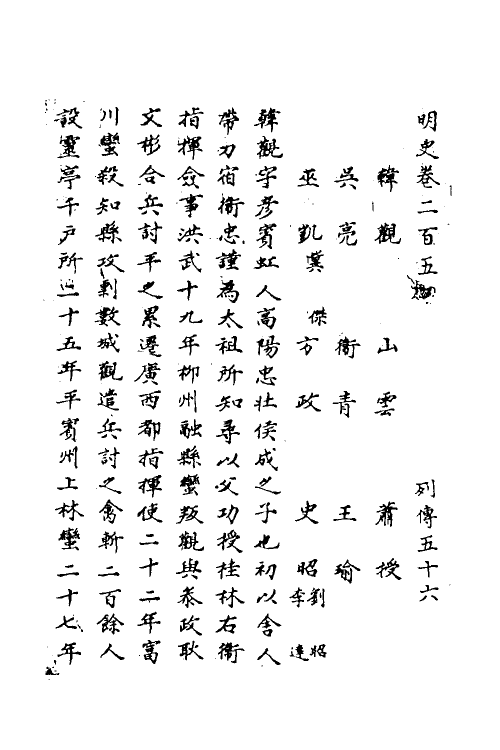 明史卷二百五 列傳五十六
韓觀 山雲 蕭授
吳亮 衞青 王瑜
巫凱 冀傑 方政 史昭 劉昭 李達
韓觀字彥賓虹人高陽忠壯侯成之子也初以舍人
帶刀宿衞忠謹為太祖所知尋以父功授桂林右衞
指揮僉事洪武十九年柳州融縣蠻叛觀與叅政耿
文彬合兵討平之累遷廣西都指揮使二十二年富
川蠻殺知縣攻剽數城觀遣兵討之禽斬二百餘人
設靈亭千戶所二十五年平賓州上林蠻二十七年